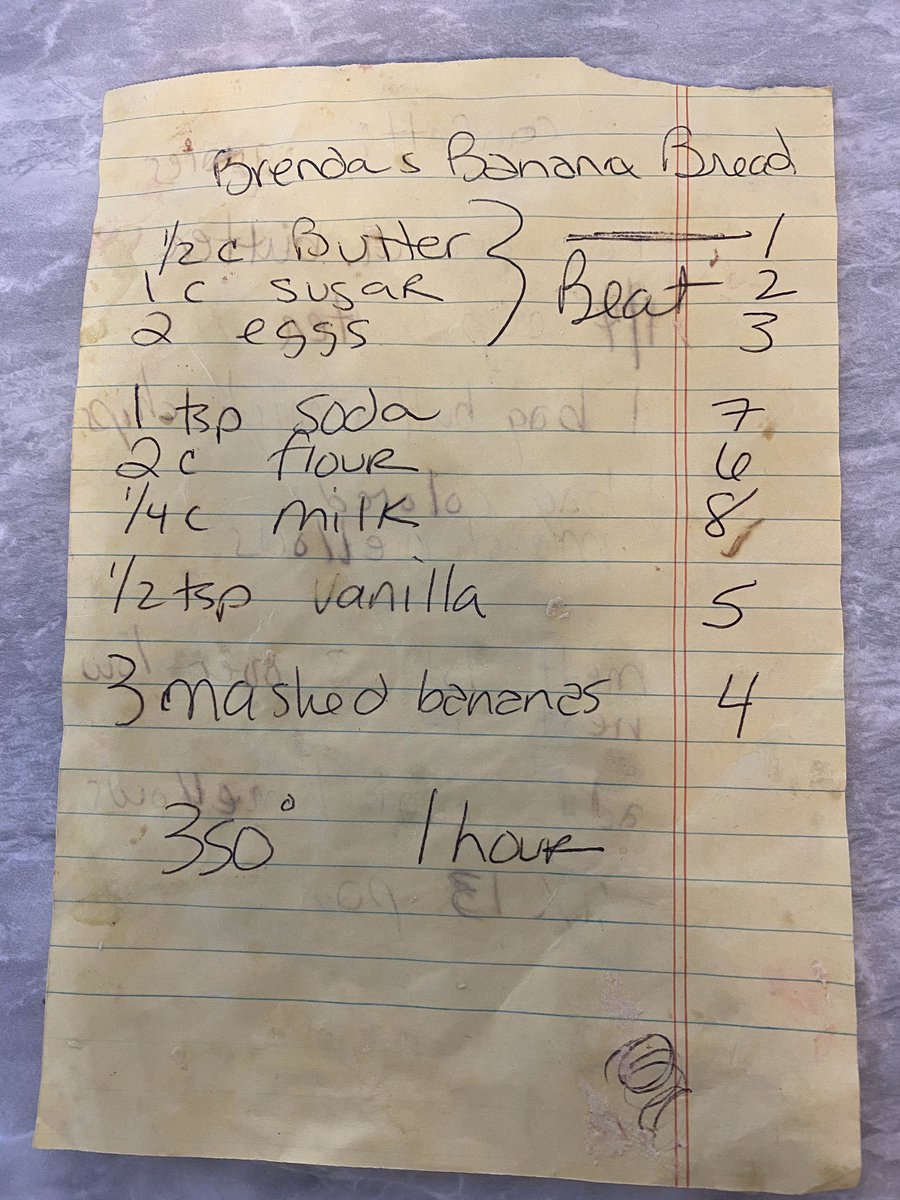 Brenda's Banana Bread
1/2 c Butter } 1
1 c sugar } Beat 2
2 eggs } 3
1 tsp soda 7
2 c flour 6
1/4 c milk 8
1/2 tsp vanilla 5
3 mashed bananas 4
350° 1 hour